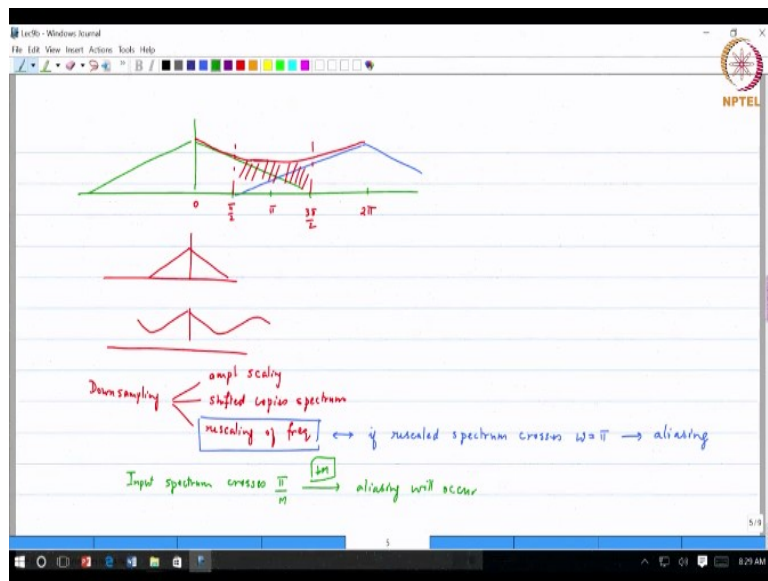 Lec9b - Windows Journal
File Edit View Insert Actions Tools Help
B I
NPTEL
0 π/2 π 3π/2 2π
Downsampling
ampl scaling
shifted copies spectrum
rescaling of freq ↔ if rescaled spectrum crosses ω=π → aliasing
Input spectrum crosses π/M ↓M → aliasing will occur
5/9
5
8:29 AM